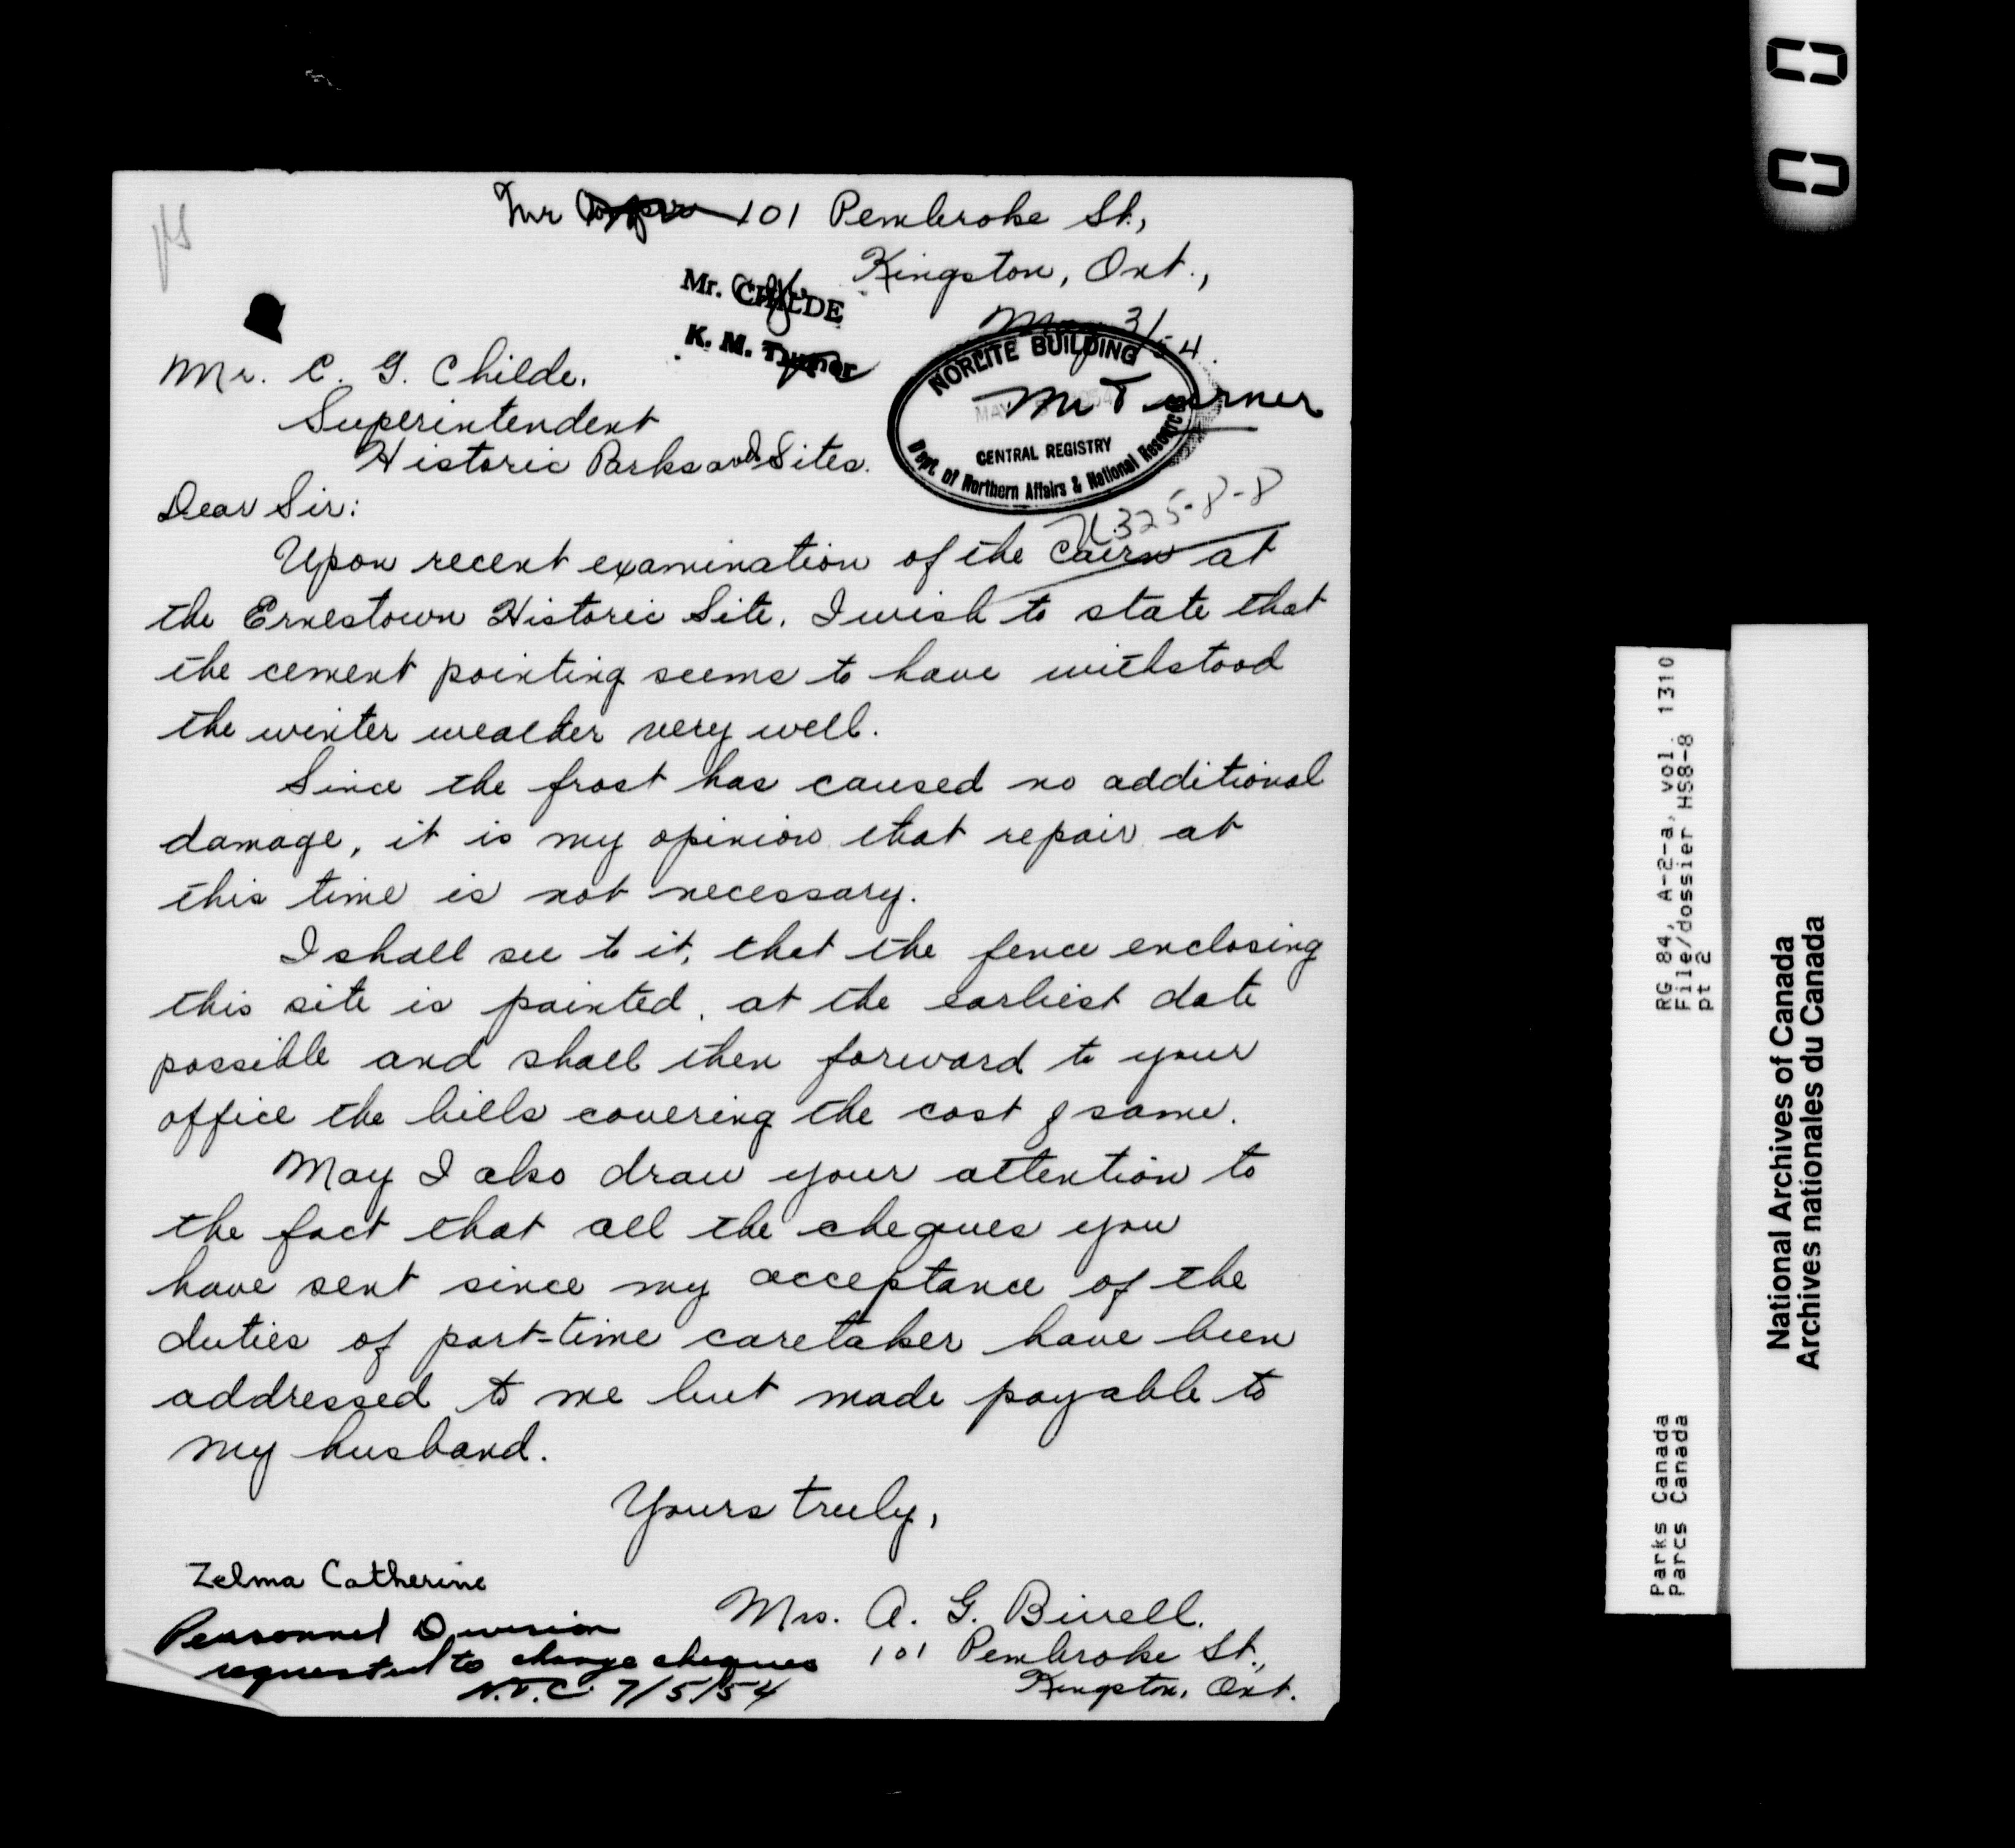 Mr 101 Pembroke St.,
Kingston, Ont.,
May 3/54.
Mr. CHILDE
K. M. Turner
NORLITE BUILDING
MAY 1954
Mr Turner
CENTRAL REGISTRY
Dept. of Northern Affairs & National Resources
325-8-8
Mr. C. G. Childe,
Superintendent
Historic Parks and Sites.
Dear Sir:
Upon recent examination of the cairn at
the Ernestown Historic Site, I wish to state that
the cement pointing seems to have withstood
the winter weather very well.
Since the frost has caused no additional
damage, it is my opinion that repair at
this time is not necessary.
I shall see to it, that the fence enclosing
this site is painted, at the earliest date
possible and shall then forward to your
office the bills covering the cost of same.
May I also draw your attention to
the fact that all the cheques you
have sent since my acceptance of the
duties of part-time caretaker have been
addressed to me but made payable to
my husband.
Yours truly,
Zelma Catherine
Mrs. A. G. Birrell.
101 Pembroke St.,
Kingston, Ont.
Personnel Division
requested to change cheques
7/5/54
RG 84, A-2-a, vol. 1310
File/dossier HS8-8
pt 2
Parks Canada
Parcs Canada
National Archives of Canada
Archives nationales du Canada